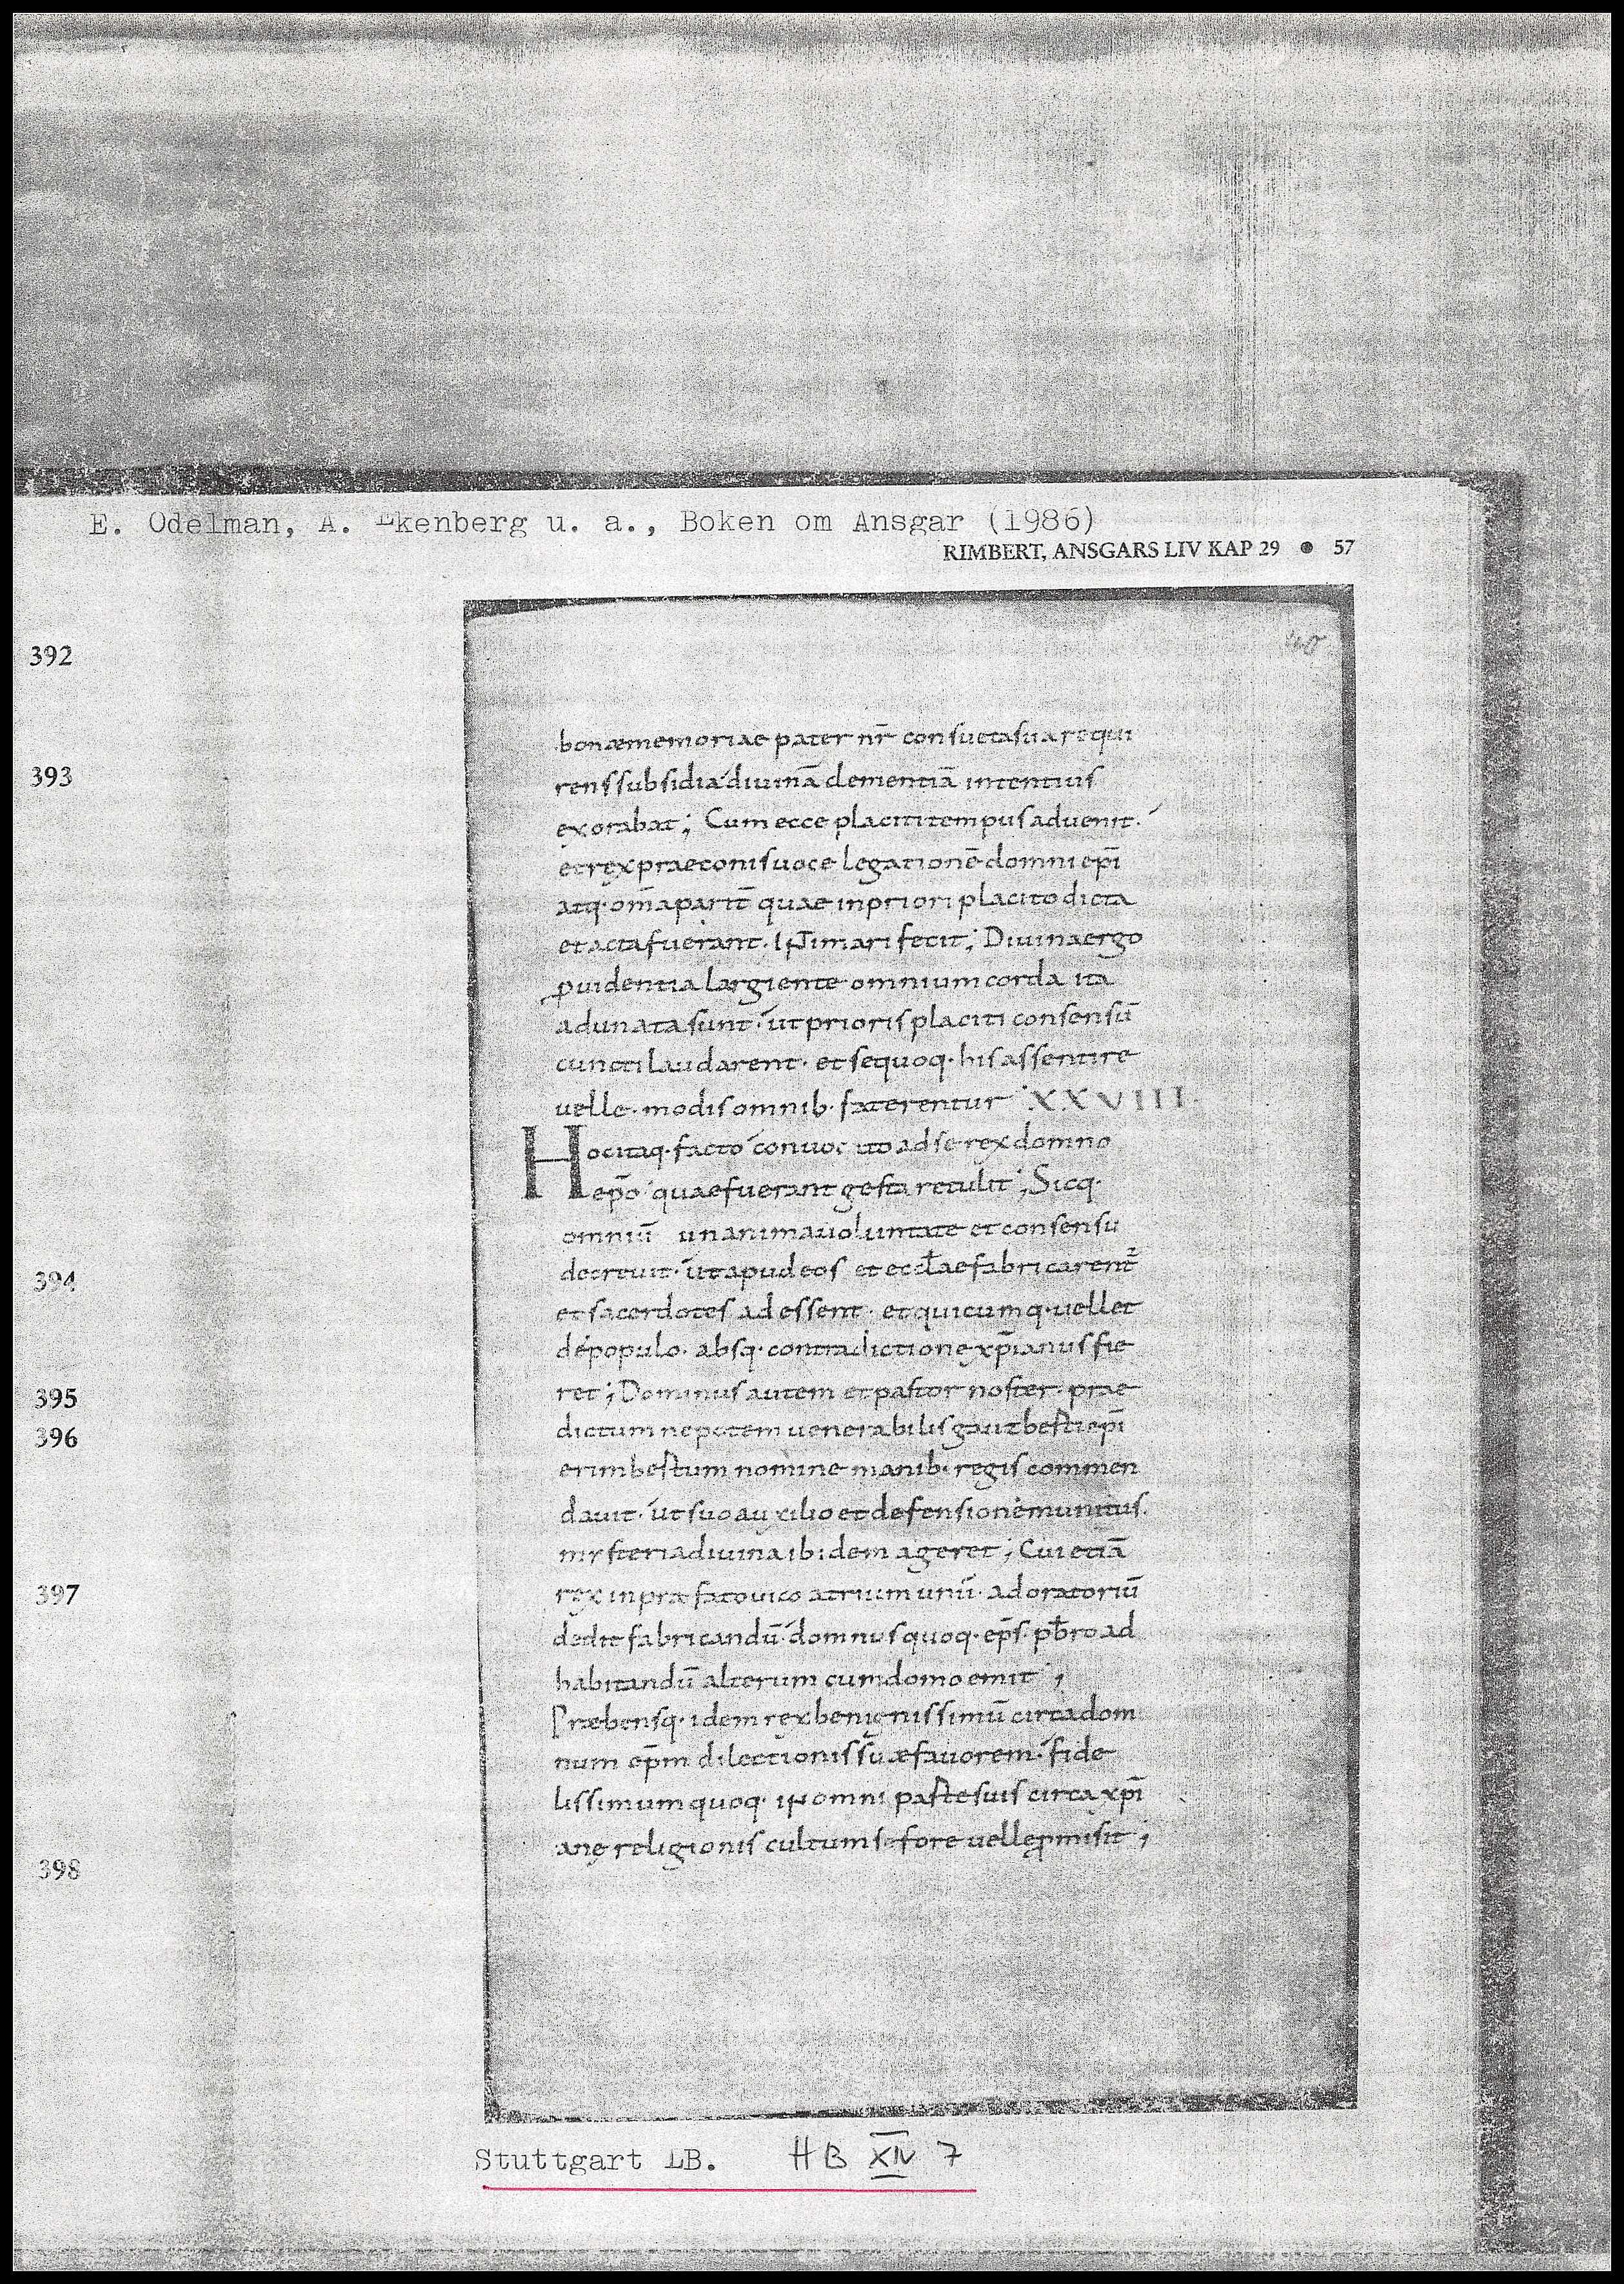 E. Odelman, A. Ekenberg u. a., Boken om Ansgar (1986)
RIMBERT, ANSGARS LIV KAP 29 ● 57
40
392
393
394
395
396
397
398
bonæmemoriae pater nr̄ consuetasua requi
renssubsidia diuinā clementiā intentius
exorabat; Cum ecce placiti tempus aduenit.
et rex praeconis uoce legationē domni ep̄i
atq· om̄a parit̄ quae inpriori placito dicta
et acta fuerant. INTimari fecit; Diuina ergo
ꝓuidentia largiente omnium corda ita
adunata sunt· ut prioris placiti consensū
cuncti laudarent· et sequoq· his assentire
uelle· modis omnib· faterentur XXVIII
Hoc itaq· facto conuocato ad se rex domno
ep̄o quae fuerant gesta retulit; Sicq·
omniū unanima uoluntate et consensu
decreuit· ut apud eos et eccl̄ae fabricarent᷑
et sacerdotes adessent· et quicumq· uellet
dé populo· absq· contradictione xp̄ianus fie
ret; Dominus autem et pastor noster· prae
dictum nepotem uenerabilis gauzberti ep̄i
erimbertum nomine manib· regis commen
dauit· ut suo auxilio et defensione munitus.
mysteria diuina ibidem ageret; Cui etiā
rex in præfato uico atrium unū· ad oratoriū
dedit fabricandū· domnus quoq· ep̄s· pb̄ro ad
habitandū alterum cum domo emit;
Præbensq· idem rex benignissimū circa dom
num ep̄m dilectionis suæ fauorem· fide
lissimum quoq· iN omni parte suis circa xp̄i
anę religionis cultum se fore uelle ꝓmisit;
Stuttgart LB. HB XIV 7